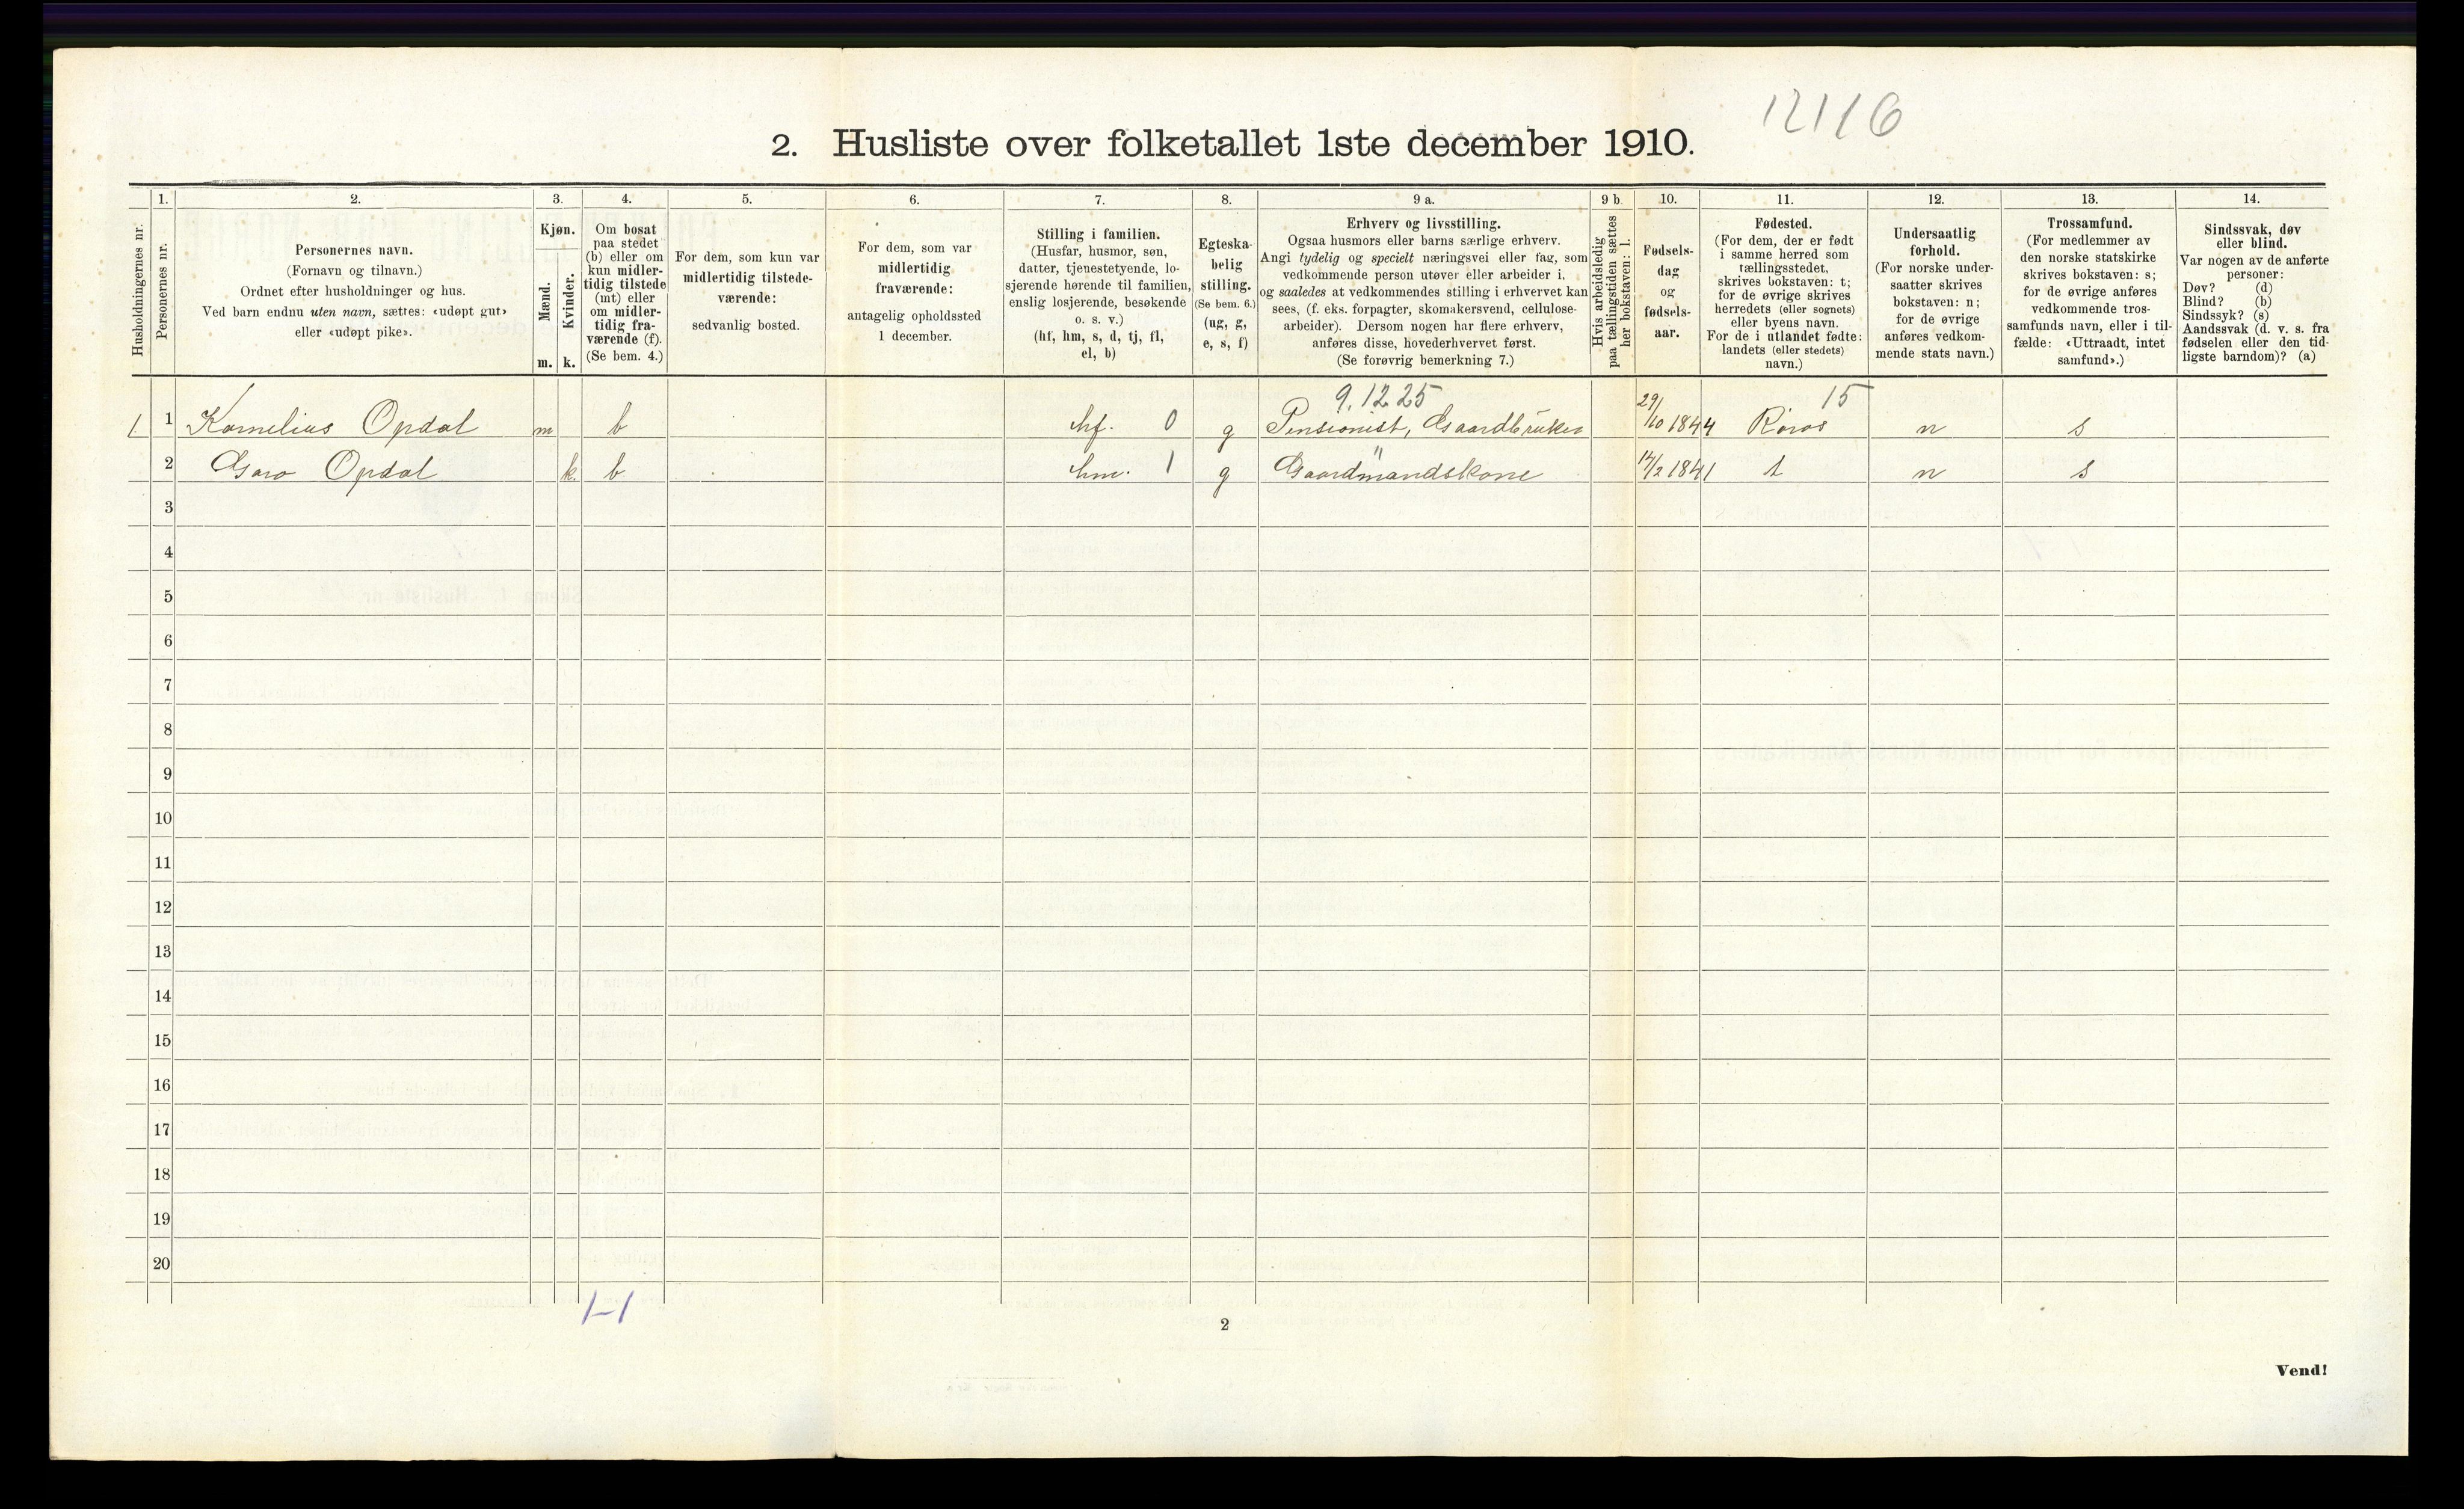 12116
2. Husliste over folketallet 1ste december 1910.
Husholdningernes nr.
1.
Personernes nr.
2.
Personernes navn.
(Fornavn og tilnavn.)
Ordnet efter husholdninger og hus.
Ved barn endnu uten navn, sættes: «udøpt gut»
eller «udøpt pike».
3.
Kjøn.
Mænd.
m.
Kvinder.
k.
4.
Om bosat
paa stedet
(b) eller om
kun midler-
tidig tilstede
(mt) eller
om midler-
tidig fra-
værende (f).
(Se bem. 4.)
5.
For dem, som kun var
midlertidig tilstede-
værende:
sedvanlig bosted.
6.
For dem, som var
midlertidig
fraværende:
antagelig opholdssted
1 december.
7.
Stilling i familien.
(Husfar, husmor, søn,
datter, tjenestetyende, lo-
sjerende hørende til familien,
enslig losjerende, besøkende
o. s. v.)
(hf, hm, s, d, tj, fl,
el, b)
8.
Egteska-
belig
stilling.
(Se bem. 6.)
(ug, g,
e, s, f)
9 a.
Erhverv og livsstilling.
Ogsaa husmors eller barns særlige erhverv.
Angi tydelig og specielt næringsvei eller fag, som
vedkommende person utøver eller arbeider i,
og saaledes at vedkommendes stilling i erhvervet kan
sees, (f. eks. forpagter, skomakersvend, cellulose-
arbeider). Dersom nogen har flere erhverv,
anføres disse, hovederhvervet først.
(Se forøvrig bemerkning 7.)
9 b.
Hvis arbeidsledig
paa tællingstiden sættes
her bokstaven: l.
10.
Fødsels-
dag
og
fødsels-
aar.
11.
Fødested.
(For dem, der er født
i samme herred som
tællingsstedet,
skrives bokstaven: t;
for de øvrige skrives
herredets (eller sognets)
eller byens navn.
For de i utlandet fødte:
landets (eller stedets)
navn.)
12.
Undersaatlig
forhold.
(For norske under-
saatter skrives
bokstaven: n;
for de øvrige
anføres vedkom-
mende stats navn.)
13.
Trossamfund.
(For medlemmer av
den norske statskirke
skrives bokstaven: s;
for de øvrige anføres
vedkommende tros-
samfunds navn, eller i til-
fælde: «Uttraadt, intet
samfund».)
14.
Sindssvak, døv
eller blind.
Var nogen av de anførte
personer:
Døv? (d)
Blind? (b)
Sindssyk? (s)
Aandssvak (d. v. s. fra
fødselen eller den tid-
ligste barndom)? (a)
9.12.25 15
1. 1 Kornelius Opdal m b hf. 0 g Pensionist, Gaardbruker 29/10 1844 Röros n s
2 Goro Opdal k. b hm. 1 g Gaardmandskone " 1841 t n s
3
4
5
6
7
8
9
10
11
12
13
14
15
16
17
18
19
20
1-1
2
Vend!